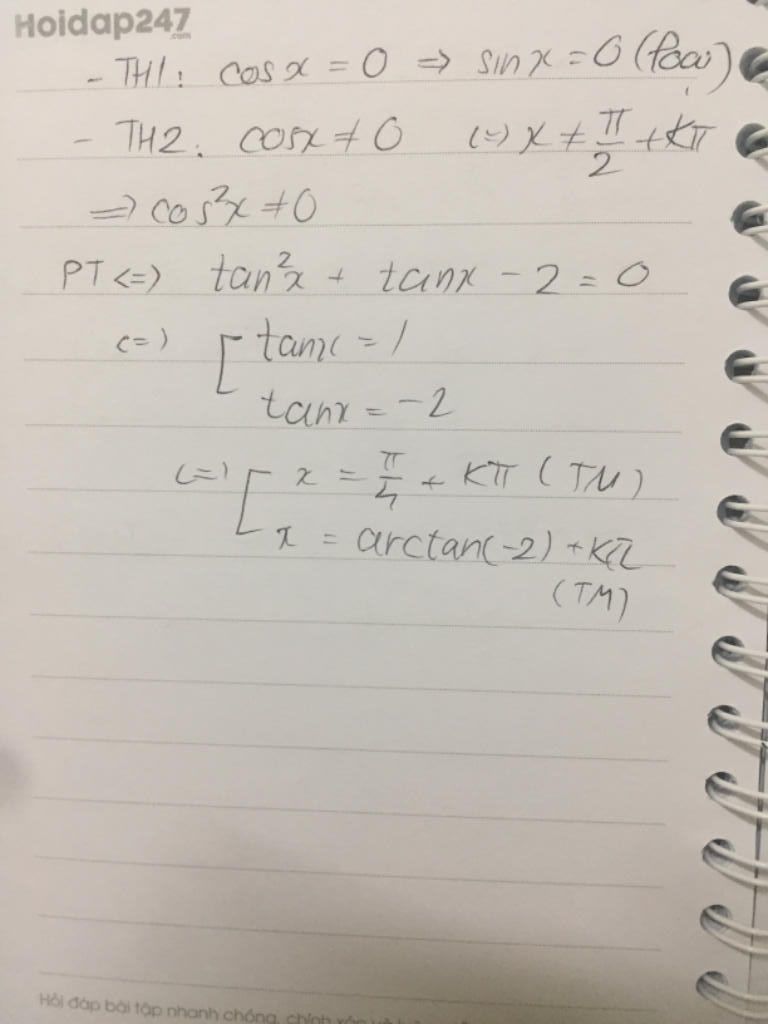 Hoidap247
.com
- TH1: cosx = 0 => sinx = 0 (loại)
- TH2: cosx ≠ 0 (=) x ≠ π/2 + Kπ
=> cos²x ≠ 0
PT <=> tan²x + tanx - 2 = 0
(=) [ tanx = 1
tanx = -2
(=) [ x = π/4 + Kπ (TM)
x = arctan(-2) + Kπ
(TM)
Hỏi đáp bài tập nhanh chóng, chính xác